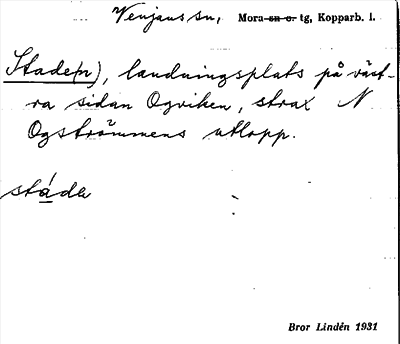 Venjans sn, Mora sn o. tg, Kopparb. l.
Stade(n), landningsplats på väst-
ra sidan Ogviken, strax N
Ogströmmens utlopp.
stáda
Bror Lindén 1931